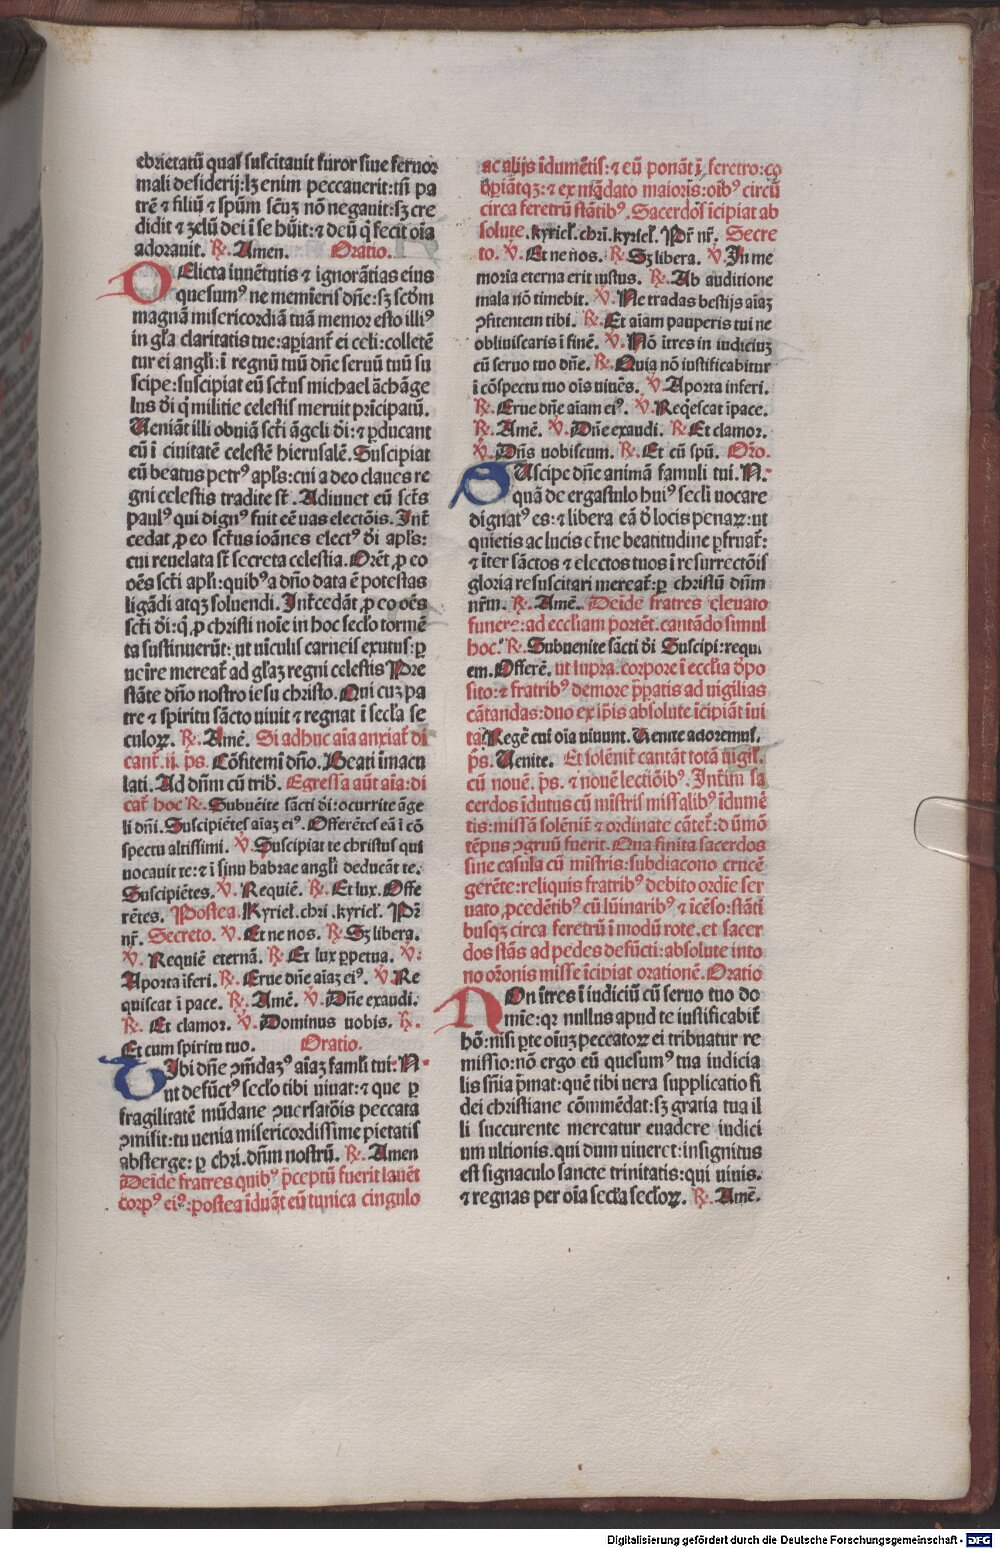 ebrietatū quas suscitauit furor siue feruor
mali desiderij: lꝫ enim peccauerit: tn̄ pa
trē ⁊ filiū ⁊ spm̄ scm̄ nō negauit: sꝫ cre
didit ⁊ zelū dei ī se hūit: ⁊ deū q̄ fecit oīa
adorauit. ℟. Amen. Oratio.
DElicta iuuētutis ⁊ ignorātias eius
quesumꝰ ne memīeris dn̄e: sꝫ scd̄m
magnā misericordiā tuā memor esto illiꝰ
in gl̄a claritatis tue: apiant̄ ei celi: colletē
tur ei angl̄i: ī regnū tuū dn̄e seruū tuū su
scipe: suscipiat eū sctūs michael ārchāge
lus d̄i q̄ militie celestis meruit prīcipatū.
Ueniāt illi obuiā scti āgeli d̄i: ⁊ ꝑducant
eū ī ciuitatē celestē hierusalē. Suscipiat
eū beatus petrꝰ apl̄s: cui a deo claues re
gni celestis tradite st̄. Adiuuet eū scts̄
paulꝰ qui dignꝰ fuit eē uas electōis. Int̄
cedat ꝓ eo sctūs ioānes electꝰ d̄i apl̄s:
cui reuelata st̄ secreta celestia. Orēt ꝓ eo
oēs scti apl̄i: quibꝰ a dn̄o data ē potestas
ligādi atqꝫ soluendi. Int̄cedāt ꝓ eo oēs
scti d̄i: q̄ ꝓ christi noīe in hoc secl̄o tormē
ta sustinuerūt: ut uīculis carneis exutus: ꝑ
uēire mereat̄ ad gl̄aꝫ regni celestis Pre
stāte dn̄o nostro iesu christo. Qui cuꝫ pa
tre ⁊ spiritu sācto uiuit ⁊ regnat ī secl̄a se
culoꝝ. ℟. Amē. Si adhuc aīa anxiat̄ di
cant̄. ij. p̄s. Cōfitemī dn̄o. Beati īmacu
lati. Ad dn̄m cū trib̄. Egressa aūt aīa: di
cat̄ hoc ℟. Subuēite sācti d̄i: ocurrite āge
li dn̄i. Suscipiētes aīaꝫ eiꝰ. Offerētes eā ī cō
spectu altissimi. ℣. Suscipiat te christus qui
uocauit te: ⁊ ī sinu habrae angl̄i deducāt te.
Suscipiētes. ℣. Requiē. ℟. Et lux. Offe
rētes. Postea. Kyriel̄. chri. kyriel̄. Pr̄
nr̄. Secreto. ℣. Et ne nos. ℟. Sꝫ libera.
℣. Requiē eternā. ℟. Et lux ꝑpetua. ℣:
Aporta īferi. ℟. Erue dn̄e aīaꝫ eiꝰ. ℣. Re
quiscat ī pace. ℟. Amē. ℣. Dn̄e exaudi.
℟. Et clamor. ℣. Dominus uobis. ℟.
Et cum spiritu tuo. Oratio.
TIbi dn̄e ꝯm̄dazꝰ aīaꝫ faml̄i tui: N.
ut defūctꝰ secl̄o tibi uiuat: ⁊ que ꝑ
fragilitatē mūdane ꝯuersatōis peccata
ꝯmisit: tu uenia misericordissime pietatis
absterge: ꝑ chri. dn̄m nostrū. ℟. Amen
Deīde fratres quibꝰ p̄ceptū fuerit lauēt
corpꝰ eiꝰ: postea īduāt eū tunica cingulo
ac alijs īdumētis: ⁊ eū ponāt ī feretro: co
opiātqꝫ: ⁊ ex mādato maioris: oībꝰ circū
circa feretrū stātibꝰ. Sacerdos īcipiat ab
solute. kyriel̄. chri. kyriel̄. Pr̄ nr̄. Secre
to. ℣. Et ne nos. ℟. Sꝫ libera. ℣. In me
moria eterna erit iustus. ℟. Ab auditione
mala nō timebit. ℣. Ne tradas bestijs aīaꝫ
ꝯfitentem tibi. ℟. Et aīam pauperis tui ne
obliuiscaris ī finē. ℣. Nō ītres in iudiciuꝫ
cū seruo tuo dn̄e. ℟. Quia nō iustificabitur
ī cōspectu tuo oīs uiuēs. ℣. Aporta inferi.
℟. Erue dn̄e aīam eiꝰ. ℣. Reqēscat īpace.
℟. Amē. ℣. Dn̄e exaudi. ℟. Et clamor.
℣. Dn̄s uobiscum. ℟. Et cū spū. Orō.
SUscipe dn̄e animā famuli tui. N.
quā de ergastulo huiꝰ secl̄i uocare
dignatꝰ es: ⁊ libera eā d̄ locis penaꝝ: ut
quietis ac lucis et̄ne beatitudine ꝑfruat̄:
⁊ īter sāctos ⁊ electos tuos ī resurrectōis
gloria resuscitari mereat̄: ꝑ christū dn̄m
nr̄m. ℟. Amē. Deīde fratres eleuato
funere: ad eccl̄iam portēt. cantādo simul
hoc. ℟. Subuenite sācti d̄i Suscipi: requi
em. Offerē. ut supra. corpore ī eccl̄ia d̄po
sito: ⁊ fratribꝰ de more p̄patis ad uigilias
cātandas: duo ex ip̄is absolute īcipiāt īui
ta. Regē cui oīa uiuunt. Uenite adoremus.
p̄s. Uenite. Et solēnit̄ cantāt totā uigil.
cū nouē. p̄s. ⁊ nouē lectiōibꝰ. Int̄im sa
cerdos īdutus cū mīstris missalibꝰ īdumē
tis: missā solēnit̄ ⁊ ordinate cātet: d̄ umō
tēpus ꝯgruū fuerit. Qua finita sacerdos
sine casula cū mīstris: subdiacono crucē
gerēte: reliquis fratribꝰ debito ordīe ser
uato ꝓcedētibꝰ cū lūinaribꝰ ⁊ īcēso: stāti
busqꝫ circa feretrū ī modū rote. et sacer
dos stās ad pedes defūcti: absolute into
no orōnis misse īcipiat orationē. Oratio
NOn ītres ī iudiciū cū seruo tuo do
mīe: qr nullus apud te iustificabit̄
hō: nisi ꝑte oīuꝫ peccatoꝝ ei tribuatur re
missio: nō ergo eū quesumꝰ tua iudicia
lis sn̄ia p̄mat: quē tibi uera supplicatio fi
dei christiane cōmēdat: sꝫ gratia tua il
li succurente mereatur euadere iudici
um ultionis. qui dum uiueret: insignitus
est signaculo sancte trinitatis: qui uiuis.
⁊ regnas per oīa secl̄a secl̄oꝝ. ℟. Amē.
Digitalisierung gefördert durch die Deutsche Forschungsgemeinschaft - DFG